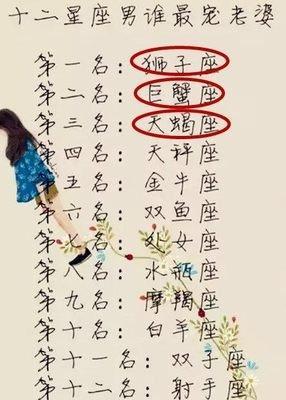 十二星座男谁最宠老婆
第一名：狮子座
第二名：巨蟹座
第三名：天蝎座
第四名：天秤座
第五名：金牛座
第六名：双鱼座
第七名：处女座
第八名：水瓶座
第九名：摩羯座
第十名：白羊座
第十一名：双子座
第十二名：射手座